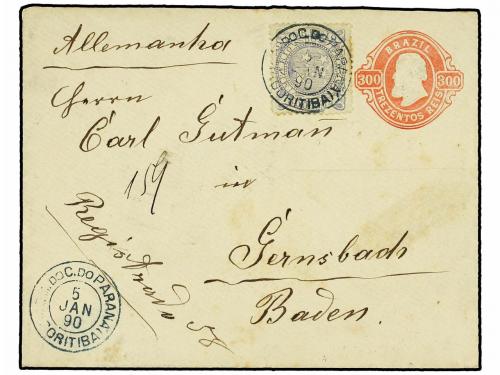 Allemanha
Herrn
Carl Gutman
in
Gernsbach
Baden.
159
Registrado
BRAZIL
300 300
TREZENTOS REIS
DO C. DO PARANA
5
JAN
90
CORITIBA
DO C. DO PARANA
5
JAN
90
CORITIBA